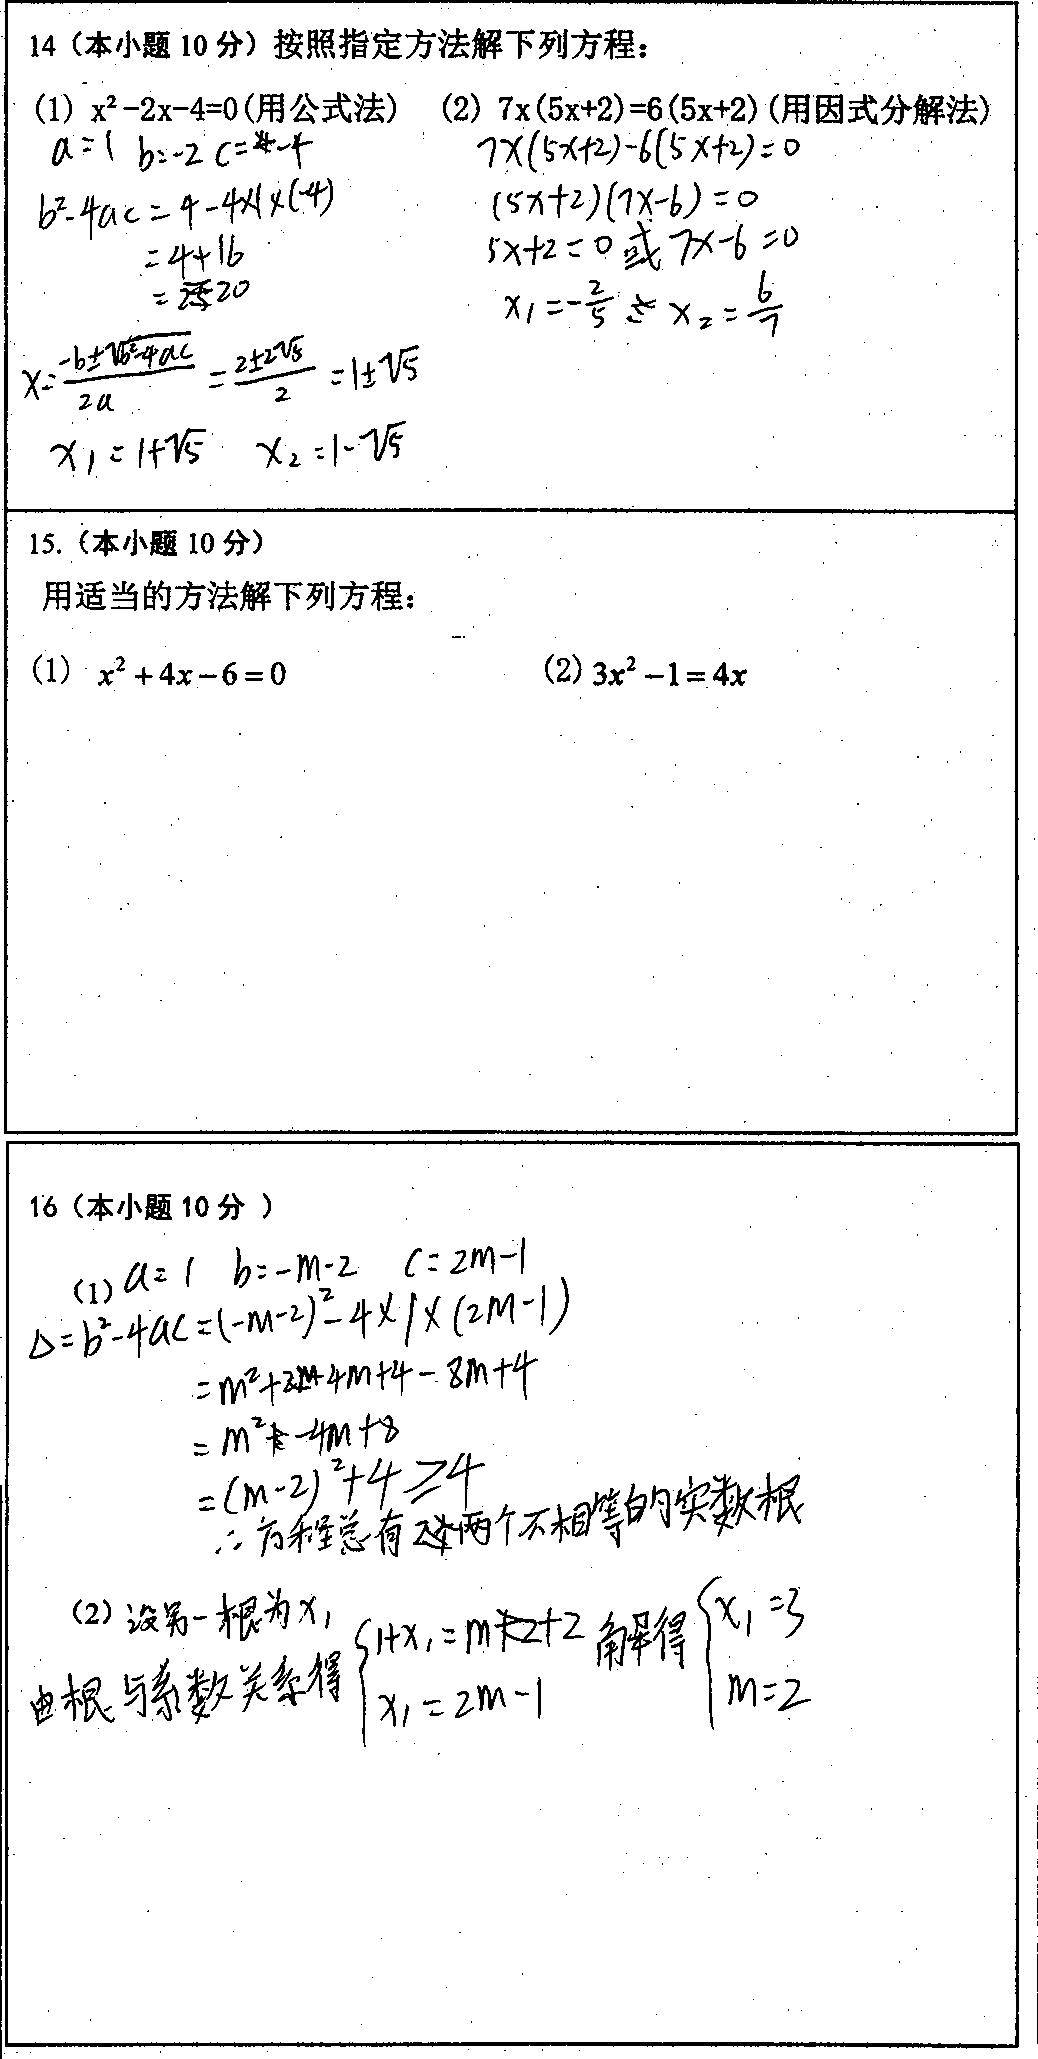 14（本小题 10 分）按照指定方法解下列方程：
(1) x²-2x-4=0(用公式法) (2) 7x(5x+2)=6(5x+2)(用因式分解法)
a=1 b=-2 c=-4
b²-4ac=4-4×1×(-4)
=4+16
=20
x=(-b±√(b²-4ac))/2a=(2±2√5)/2=1±√5
x₁=1+√5 x₂=1-√5
7x(5x+2)-6(5x+2)=0
(5x+2)(7x-6)=0
5x+2=0或7x-6=0
x₁=-2/5 x₂=6/7
15.（本小题 10 分）
用适当的方法解下列方程：
(1) x²+4x-6=0 (2) 3x²-1=4x
16（本小题 10 分 ）
(1) a=1 b=-m-2 c=2m-1
Δ=b²-4ac=(-m-2)²-4×1×(2m-1)
=m²+4m+4-8m+4
=m²-4m+8
=(m-2)²+4≥4
∴方程总有两个不相等的实数根
(2) 设另一根为x₁
由根与系数关系得{1+x₁=m+2 x₁=2m-1 解得{x₁=3 m=2